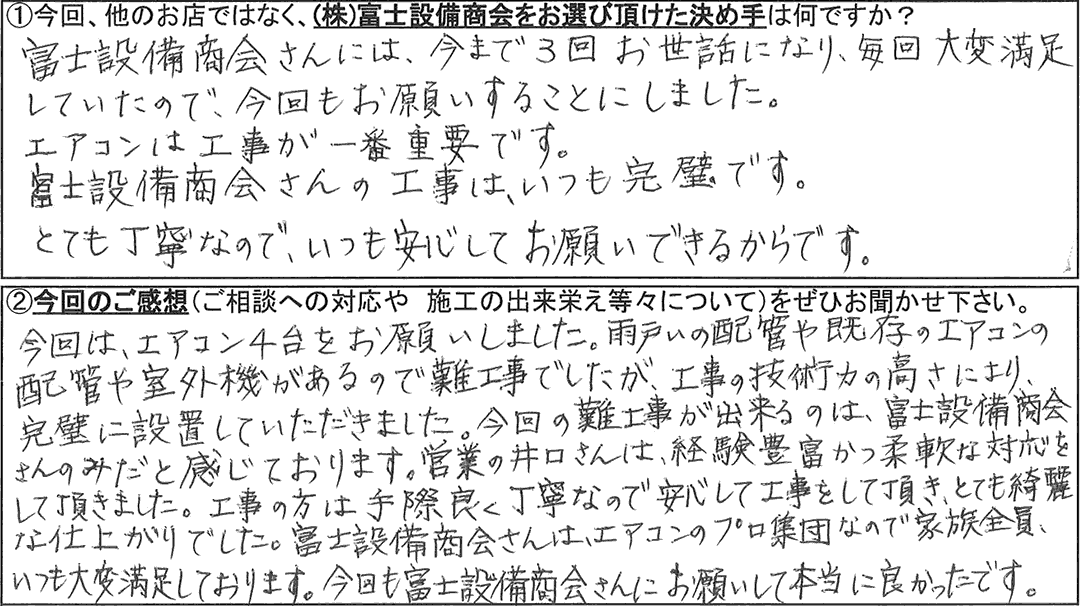 ①今回、他のお店ではなく、(株)富士設備商会をお選び頂けた決め手は何ですか？
富士設備商会さんには、今まで3回お世話になり、毎回大変満足
していたので、今回もお願いすることにしました。
エアコンは工事が一番重要です。
富士設備商会さんの工事は、いつも完璧です。
とても丁寧なので、いつも安心してお願いできるからです。
②今回のご感想(ご相談への対応や　施工の出来栄え等々について)をぜひお聞かせ下さい。
今回は、エアコン4台をお願いしました。雨戸いの配管や既存のエアコンの
配管や室外機があるので難工事でしたが、工事の技術力の高さにより、
完璧に設置していただきました。今回の難工事が出来るのは、富士設備商会
さんのみだと感じております。営業の井口さんは、経験豊富かつ柔軟な対応を
して頂きました。工事の方は手際良く丁寧なので安心して工事をして頂き、とても綺麗
な仕上がりでした。富士設備商会さんは、エアコンのプロ集団なので家族全員、
いつも大変満足しております。今回も富士設備商会さんにお願いして本当に良かったです。